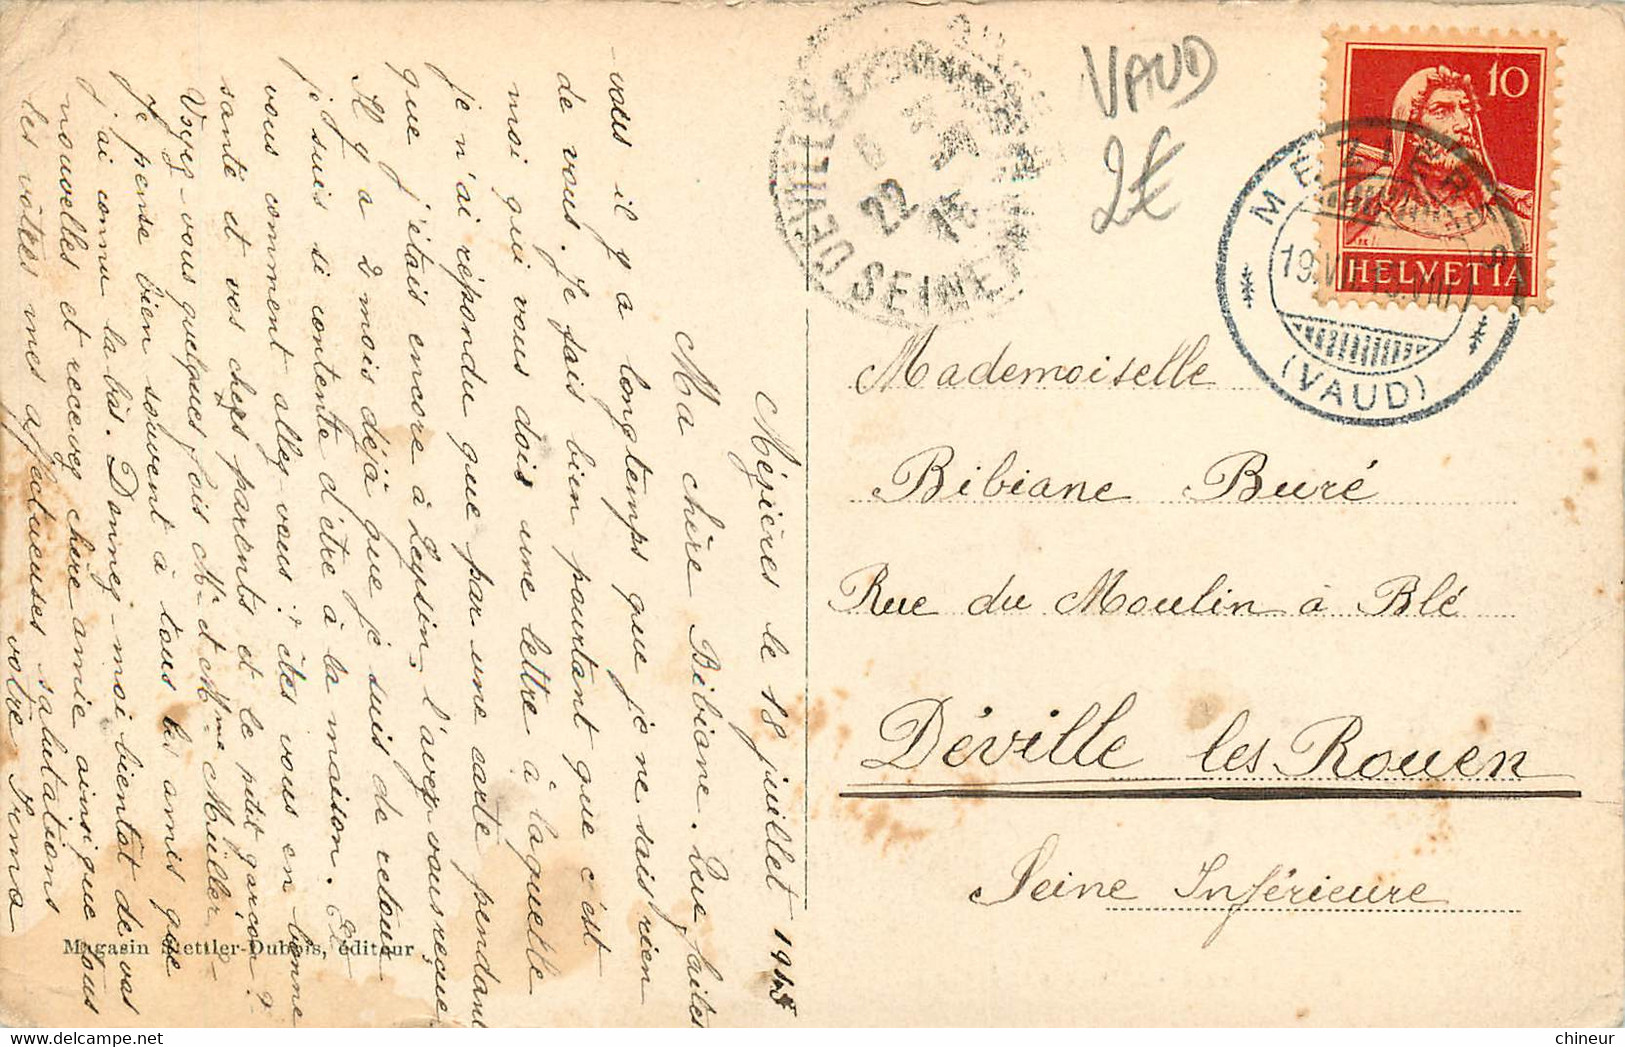 Mézières le 18 juillet 1915
Ma chère Bibiane. Que faites
vous il y a longtemps que je ne sais rien
de vous. Je sais bien pourtant que c'est
moi qui vous dois une lettre à laquelle
je n'ai répondu que par une carte pendant
que j'étais encore à Leysin, l'avez vous reçue.
Il y a 2 mois déjà que je suis de retour
je suis si contente d'être à la maison. Et
vous comment allez vous? êtes vous en bonne
santé et vos chers parents et le petit garçon?
Voyez-vous quelques fois Mr et Mme Müller
Je pense bien souvent à tous les amis que
j'ai connu là bàs. Donnez-moi bientot de vos
nouvelles et recevez chère amie ainsi que tous
les vôtres mes affectueuses salutations
votre Irma
Magasin Mettler-Dubois, éditeur
DEVILLE
SEINE
22
15
VAUD
2€
10
HELVETIA
MEZIERES
19.VII.15.VIII
(VAUD)
Mademoiselle
Bibiane Buré
Rue du Moulin à Blé
Déville les Rouen
Seine Inférieure
chineur